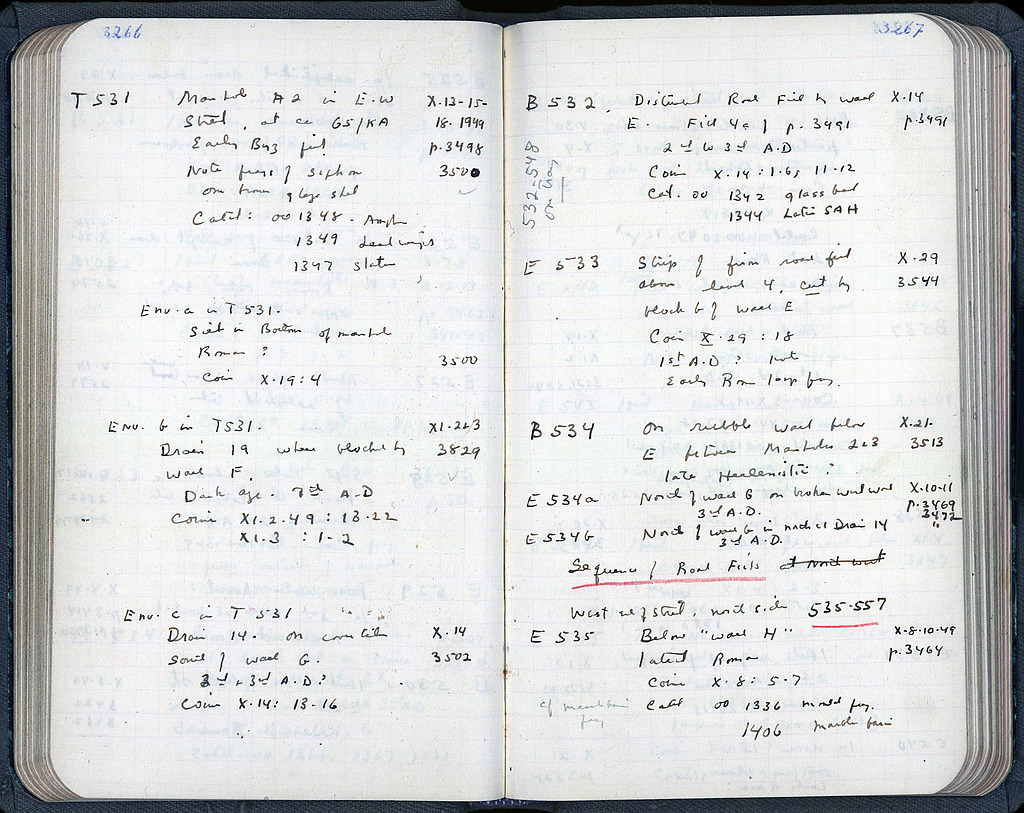 3266
T 531 Manhole A2 in E-W X.12-15-
Street, at ca G5/KA 18.1949
Early Byz fill p.3498
Note piece of siphon 3500
on tray glazed
Cat'd: oo 1348 - Amph
1349 Lead weight
1347
Env. a in T 531.
Silt in Bottom of manhole
Roman ? 3500
Coin X.19:4
Env. b in T531. XI.2+3
Drain 19 where blocked by 3829
wall F.
Dark age. 7th A.D
Coins XI.2.49 : 13-22
XI.3 : 1-2
Env. c in T 531
Drain 14. on X.14
south of wall G. 3502
2nd + 3rd A.D?
Coin X.14: 13-16
3267
B 532. Disturbed Road Fill by wall X.14
E. Fill 4a of p. 3491 p.3491
2nd to 3rd A.D
Coin X.14:1.6; 11-12
Cat. oo 1342 glass bead
1344 Late SAH
532-548
on tray
E 533 Strip of firm road fill X.29
above level 4, cut by 3544
block G of wall E
Coin X.29:18
1st A.D?
Early Rom lamp frag.
B 534 On rubble wall below X.21.
E between Manholes 2+3 3513
late Hellenistic
E 534a North of wall G on broken X.10-11
3rd A.D. p.3469
3472
E 534b North of wall G in north of Drain 14 "
3rd A.D.
Sequence of Road Fills at North west
West side of street, north side 535-557
E 535 Below "wall H" X-8-10-49
latest Roman p.3464
Coin X.8:5-7
cf marble basin Cat'd oo 1336 mould frag.
frag 1406 marble basin